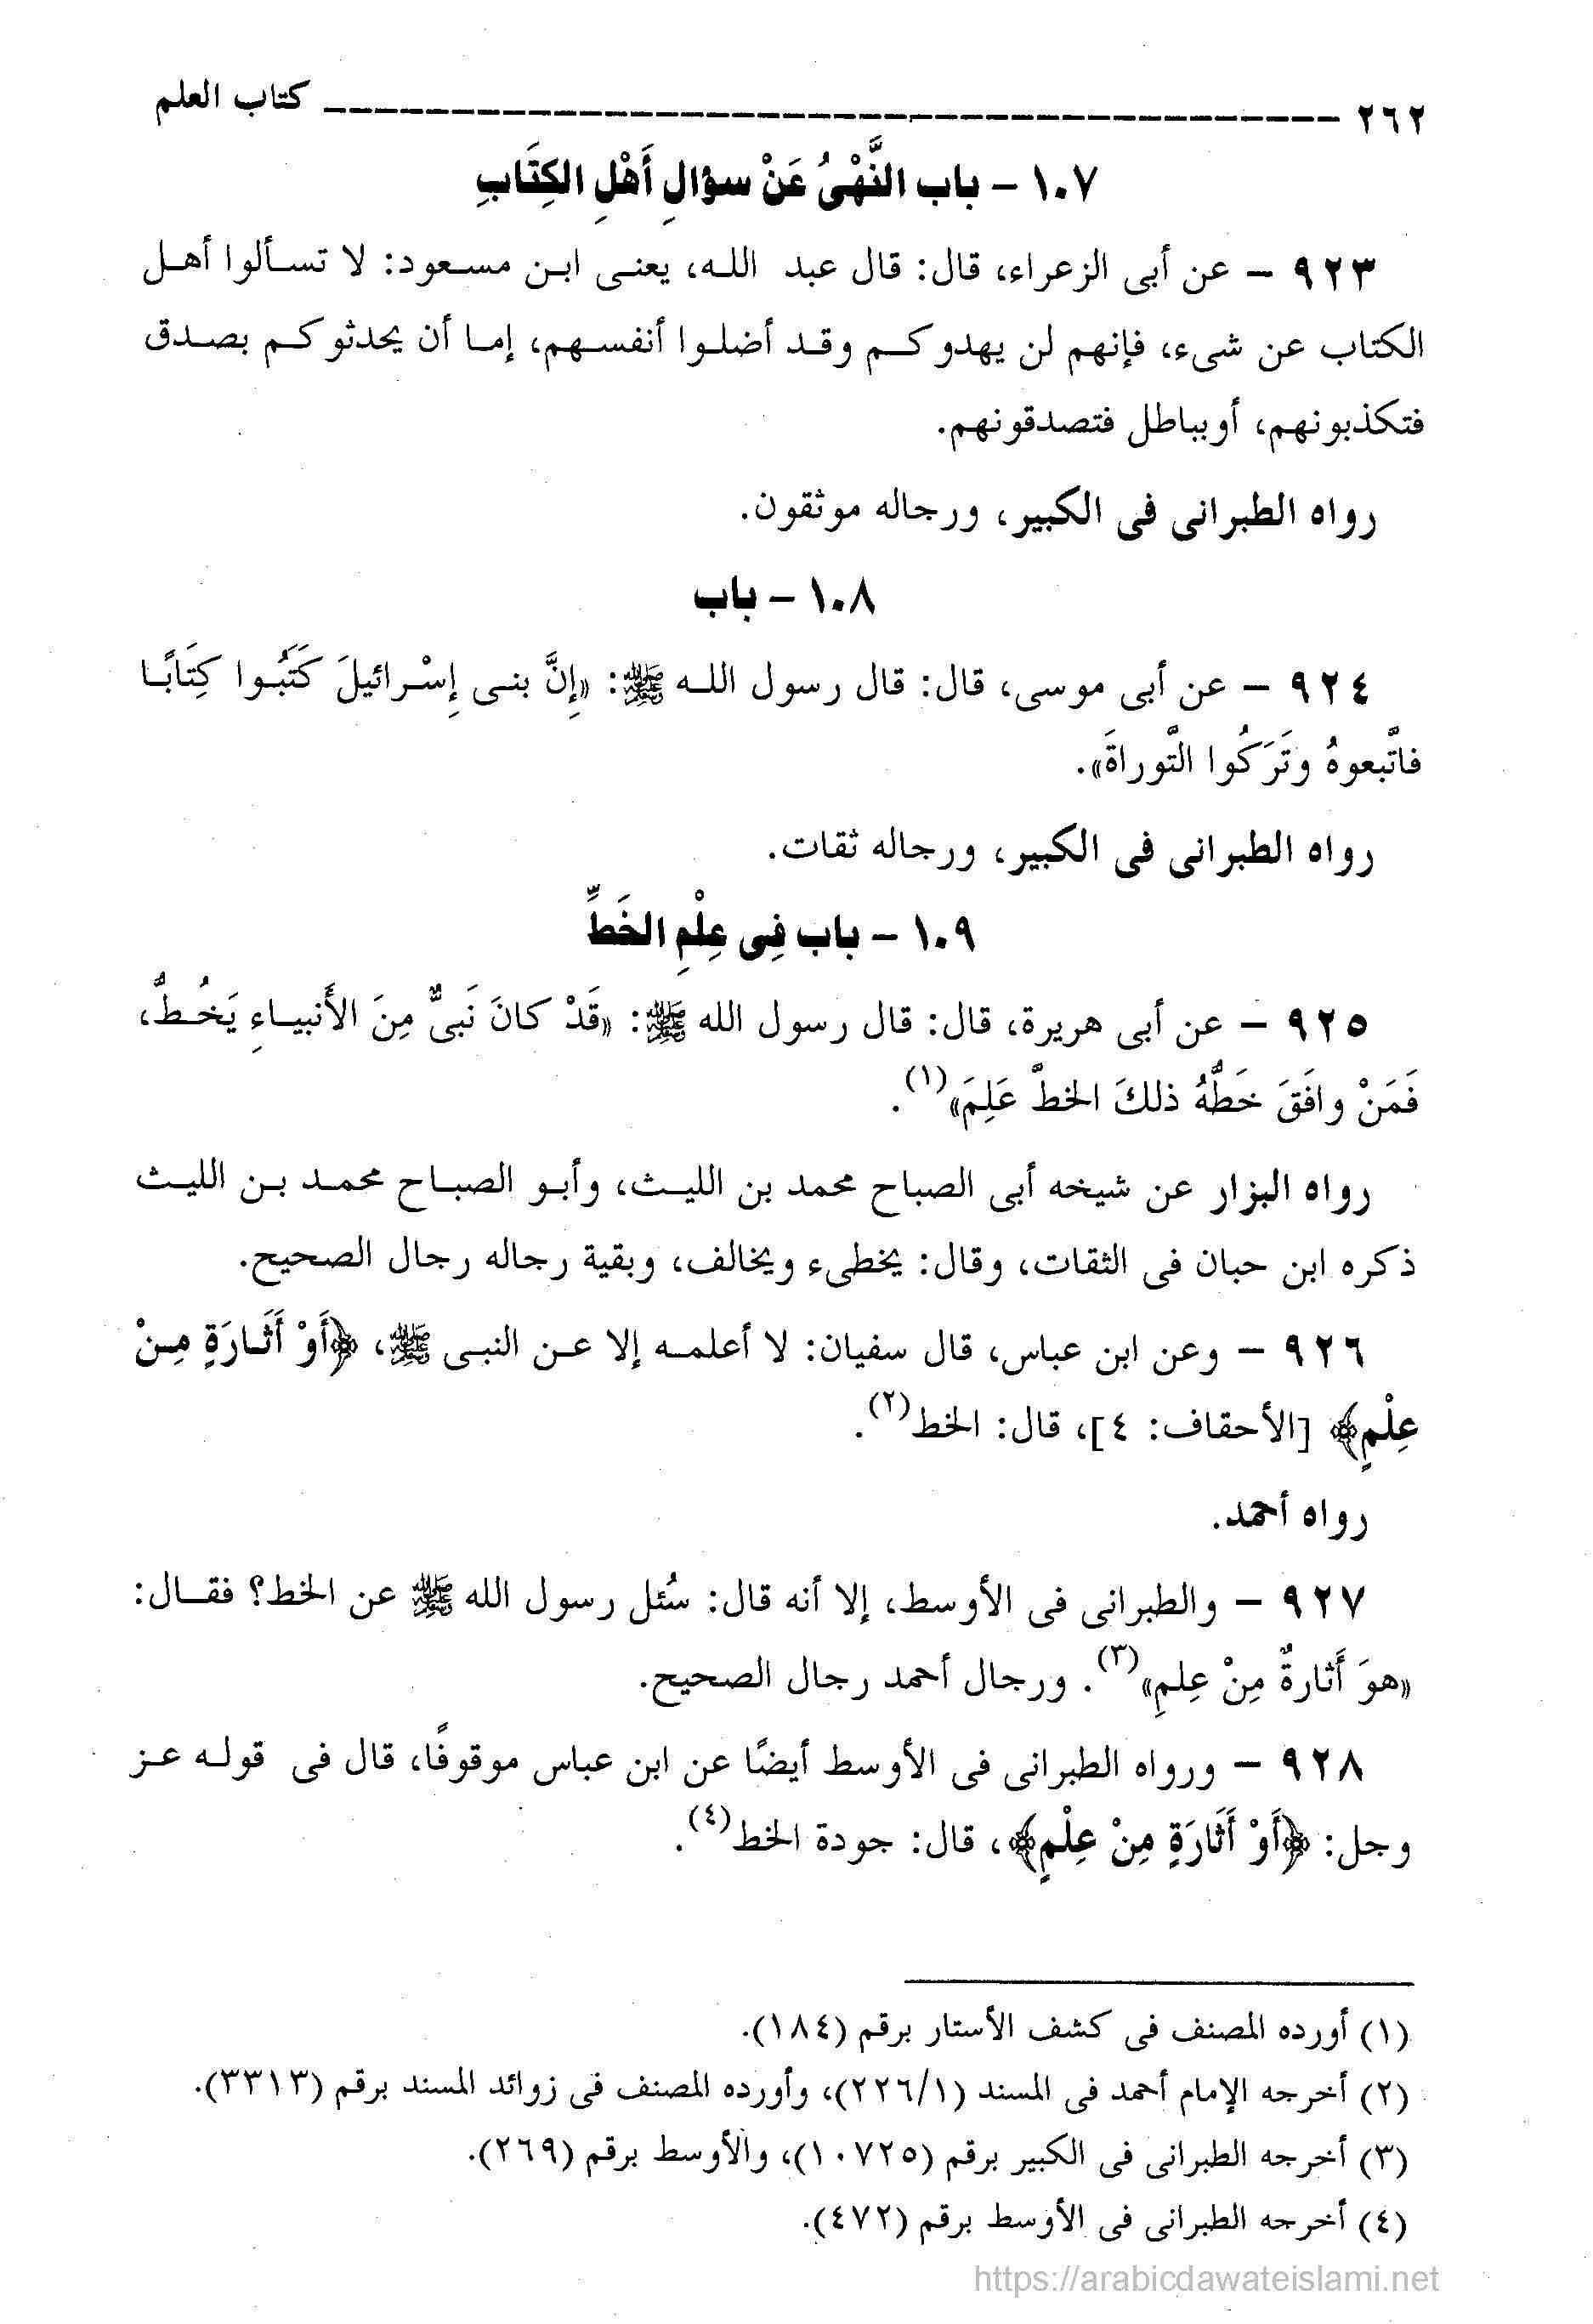 ٢٦٢ ــــــــــــــــــــــــــــــــــــــــ كتاب العلم
١٠٧ - باب النَّهْىُ عَنْ سؤالِ أَهْلِ الكِتَابِ
٩٢٣ - عن أبى الزعراء، قال: قال عبد الله، يعنى ابن مسعود: لا تسألوا أهل
الكتاب عن شىء، فإنهم لن يهدوكم وقد أضلوا أنفسهم، إما أن يحدثوكم بصدق
فتكذبونهم، أوبباطل فتصدقونهم.
رواه الطبرانى فى الكبير، ورجاله موثقون.
١٠٨ - باب
٩٢٤ - عن أبى موسى، قال: قال رسول الله ﷺ: «إِنَّ بنى إِسْرائيلَ كَتَبُوا كِتَابًا
فاتَّبعوهُ وتَرَكُوا التَّوراةَ».
رواه الطبرانى فى الكبير، ورجاله ثقات.
١٠٩ - باب فِى عِلْمِ الخَطِّ
٩٢٥ - عن أبى هريرة، قال: قال رسول الله ﷺ: «قَدْ كانَ نَبىٌّ مِنَ الأَنبياءِ يَخُطُّ،
فَمَنْ وافَقَ خَطُّهُ ذلكَ الخطَّ عَلِمَ»(١).
رواه البزار عن شيخه أبى الصباح محمد بن الليث، وأبو الصباح محمد بن الليث
ذكره ابن حبان فى الثقات، وقال: يخطىء ويخالف، وبقية رجاله رجال الصحيح.
٩٢٦ - وعن ابن عباس، قال سفيان: لا أعلمه إلا عن النبى ﷺ، ﴿أَوْ أَثَارَةٍ مِنْ
عِلْمٍ﴾ [الأحقاف: ٤]، قال: الخط(٢).
رواه أحمد.
٩٢٧ - والطبرانى فى الأوسط، إلا أنه قال: سُئل رسول الله ﷺ عن الخط؟ فقال:
«هوَ أَثارةٌ مِنْ عِلمٍ»(٣). ورجال أحمد رجال الصحيح.
٩٢٨ - ورواه الطبرانى فى الأوسط أيضًا عن ابن عباس موقوفًا، قال فى قوله عز
وجل: ﴿أَوْ أَثَارَةٍ مِنْ عِلْمٍ﴾، قال: جودة الخط(٤).
(١) أورده المصنف فى كشف الأستار برقم (١٨٤).
(٢) أخرجه الإمام أحمد فى المسند (٢٢٦/١)، وأورده المصنف فى زوائد المسند برقم (٣٣١٣).
(٣) أخرجه الطبرانى فى الكبير برقم (١٠٧٢٥)، والأوسط برقم (٢٦٩).
(٤) أخرجه الطبرانى فى الأوسط برقم (٤٧٢).
https://arabicdawateislami.net